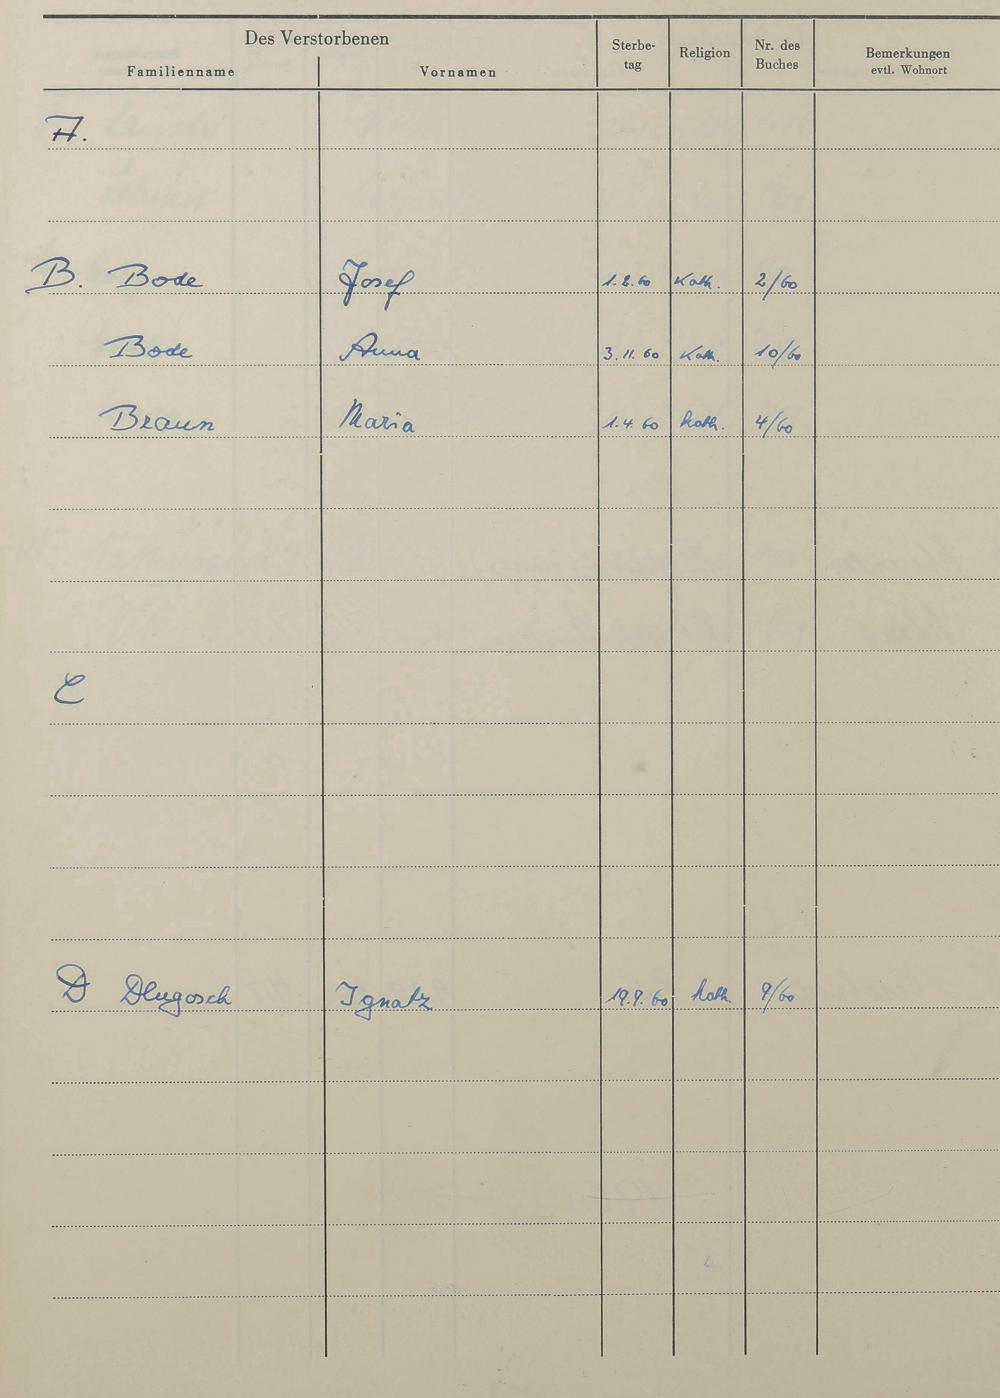 Des Verstorbenen
Familienname Vornamen Sterbe-
tag Religion Nr. des
Buches Bemerkungen
evtl. Wohnort
A.
B. Bode Josef 1.2.60 Kath. 2/60
Bode Anna 3.11.60 Kath. 10/60
Braun Maria 1.4.60 Kath. 4/60
C
D Dlugosch Ignatz 19.9.60 Kath. 9/60